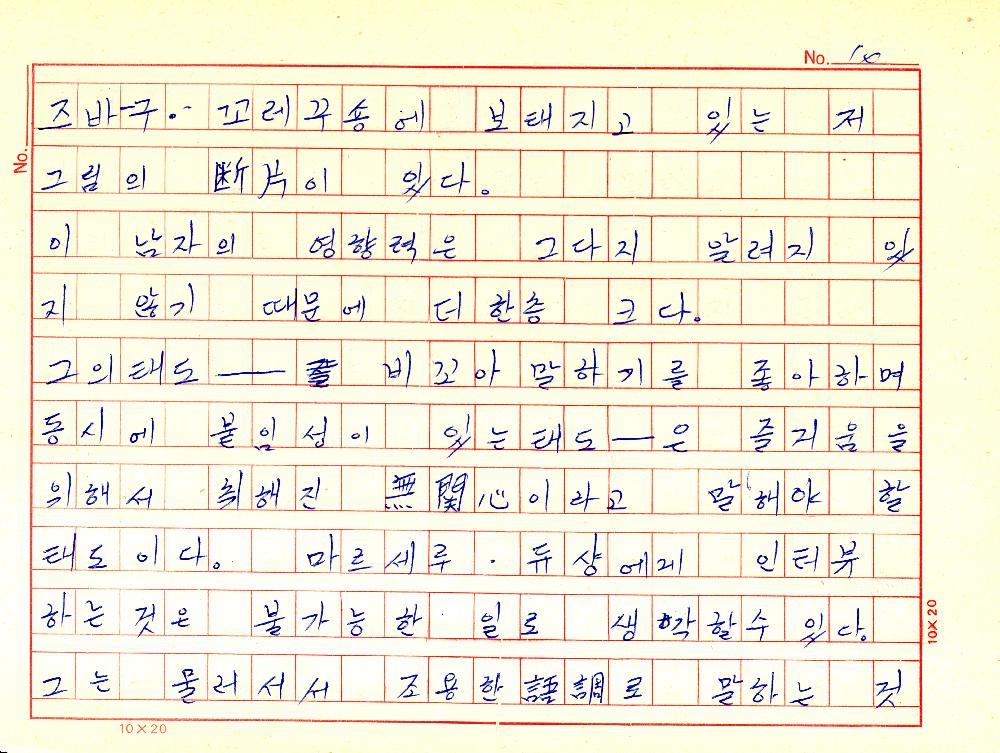 No. 18
No.
즈바구·꼬레꾸숑에 보태지고 있는 저
그림의 断片이 있다。
이 남자의 영향력은 그다지 알려지 있
지 않기 때문에 더 한층 크다。
그의태도 —— 비꼬아 말하기를 좋아하며
동시에 붙임성이 있는태도—은 즐거움을
위해서 취해진 無関心이라고 말해야 할
태도이다。 마르세루·듀샹에게 인터뷰
하는것은 불가능한 일로 생각할수 있다。
그는 물러서서 조용한語調로 말하는 것
10×20
10×20